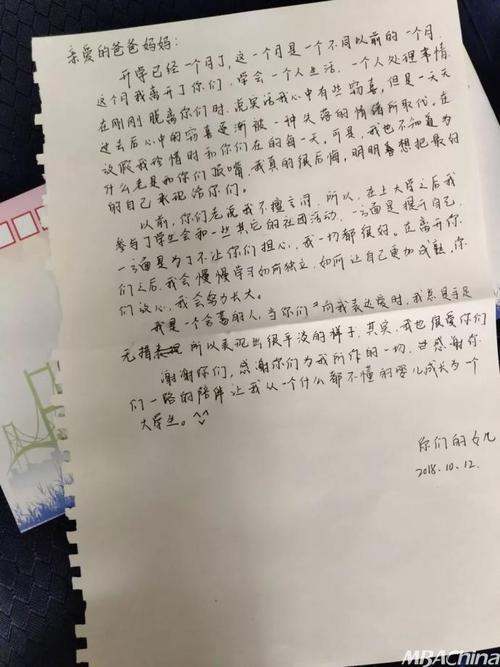 亲爱的爸爸妈妈：
开学已经一个月了，这一个月是一个不同以前的一个月，
这个月我离开了你们，学会一个人生活，一个人处理事情，
在刚刚脱离你们时，说实话我心中有些窃喜，但是一天天
过去后心中的窃喜逐渐被一种失落的情绪所取代，在
放假我珍惜时和你们在的每一天，可是，我也不知道为
什么老是和你们扳嘴，我真的很后悔，明明想把最好
的自己表现给你们。
以前，你们老说我不擅言谈，所以，在上大学之后我
参与了学生会和一些其后的社团活动，一方面是提升自己，
一方面是为了不让你们担心，我一切都很好。在离开你
们之后，我会慢慢学习如何独立，如何让自己更加成熟，你
们放心，我会努力长大。
我是一个含蓄的人，当你们向我表达爱时，我总是手足
无措 所以表现出很平淡的样子，其实，我也很爱你们
谢谢你们，感谢你们为我所作的一切，感谢你
们一路的陪伴让我从一个什么都不懂的婴儿成长为一个
大学生。^_^
你们的女儿
2018.10.12.
MBAChina